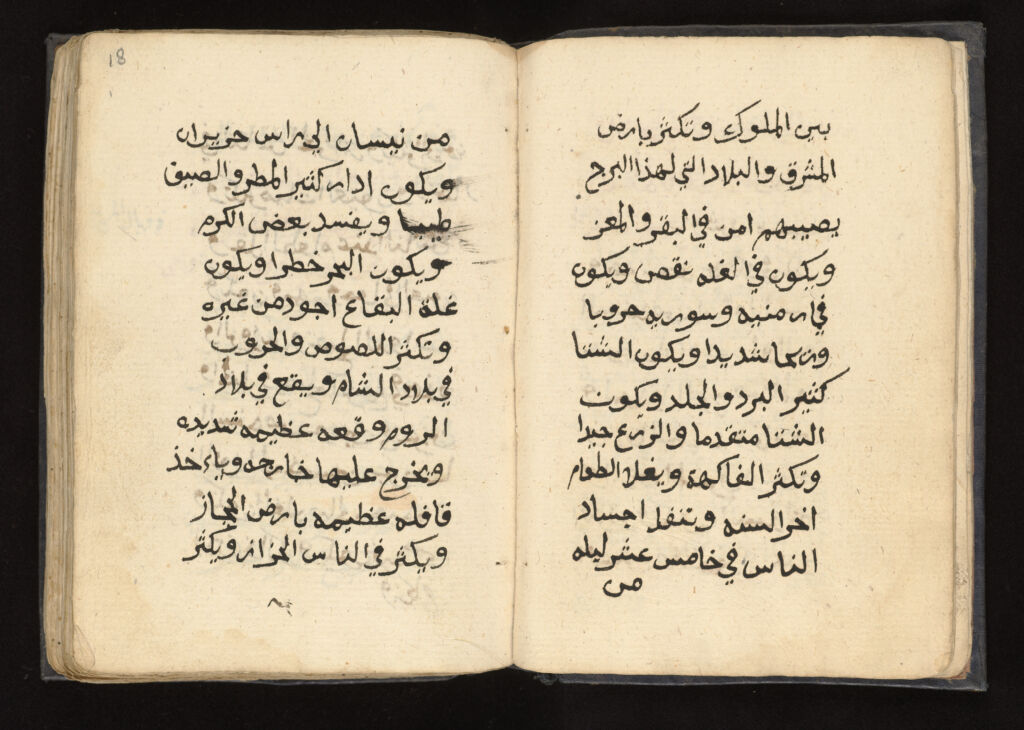 بين الملوك وتكثر بارض
المشرق والبلاد التي لهذا البرج
يصيبهم امن في البقر والمعز
ويكون في الغله نقص ويكون
في ارمنيه وسوريه حروبا
شديدا ويكون الشتا
كثير البرد والجلد ويكون
الشتا متقدما والزرع جيدا
وتكثر الفاكهة ويغلا الطعام
اخر السنه وتنفل اجساد
الناس في خامس عشر ليله
من
18
من نيسان الي راس حزيران
ويكون ادار كثير المطر والصيف
طيبا ويفسد بعض الكرم
ويكون البحر خطرا ويكون
غلة البقاع اجود من غيره
وتكثر اللصوص والحروب
في بلاد الشام ويقع في بلاد
الروم وقعه عظيمه شديده
ويخرج عليها خارجه وياءخذ
قافله عظيمه بارض الحجاز
ويكثر في الناس الحزاز ويكثر